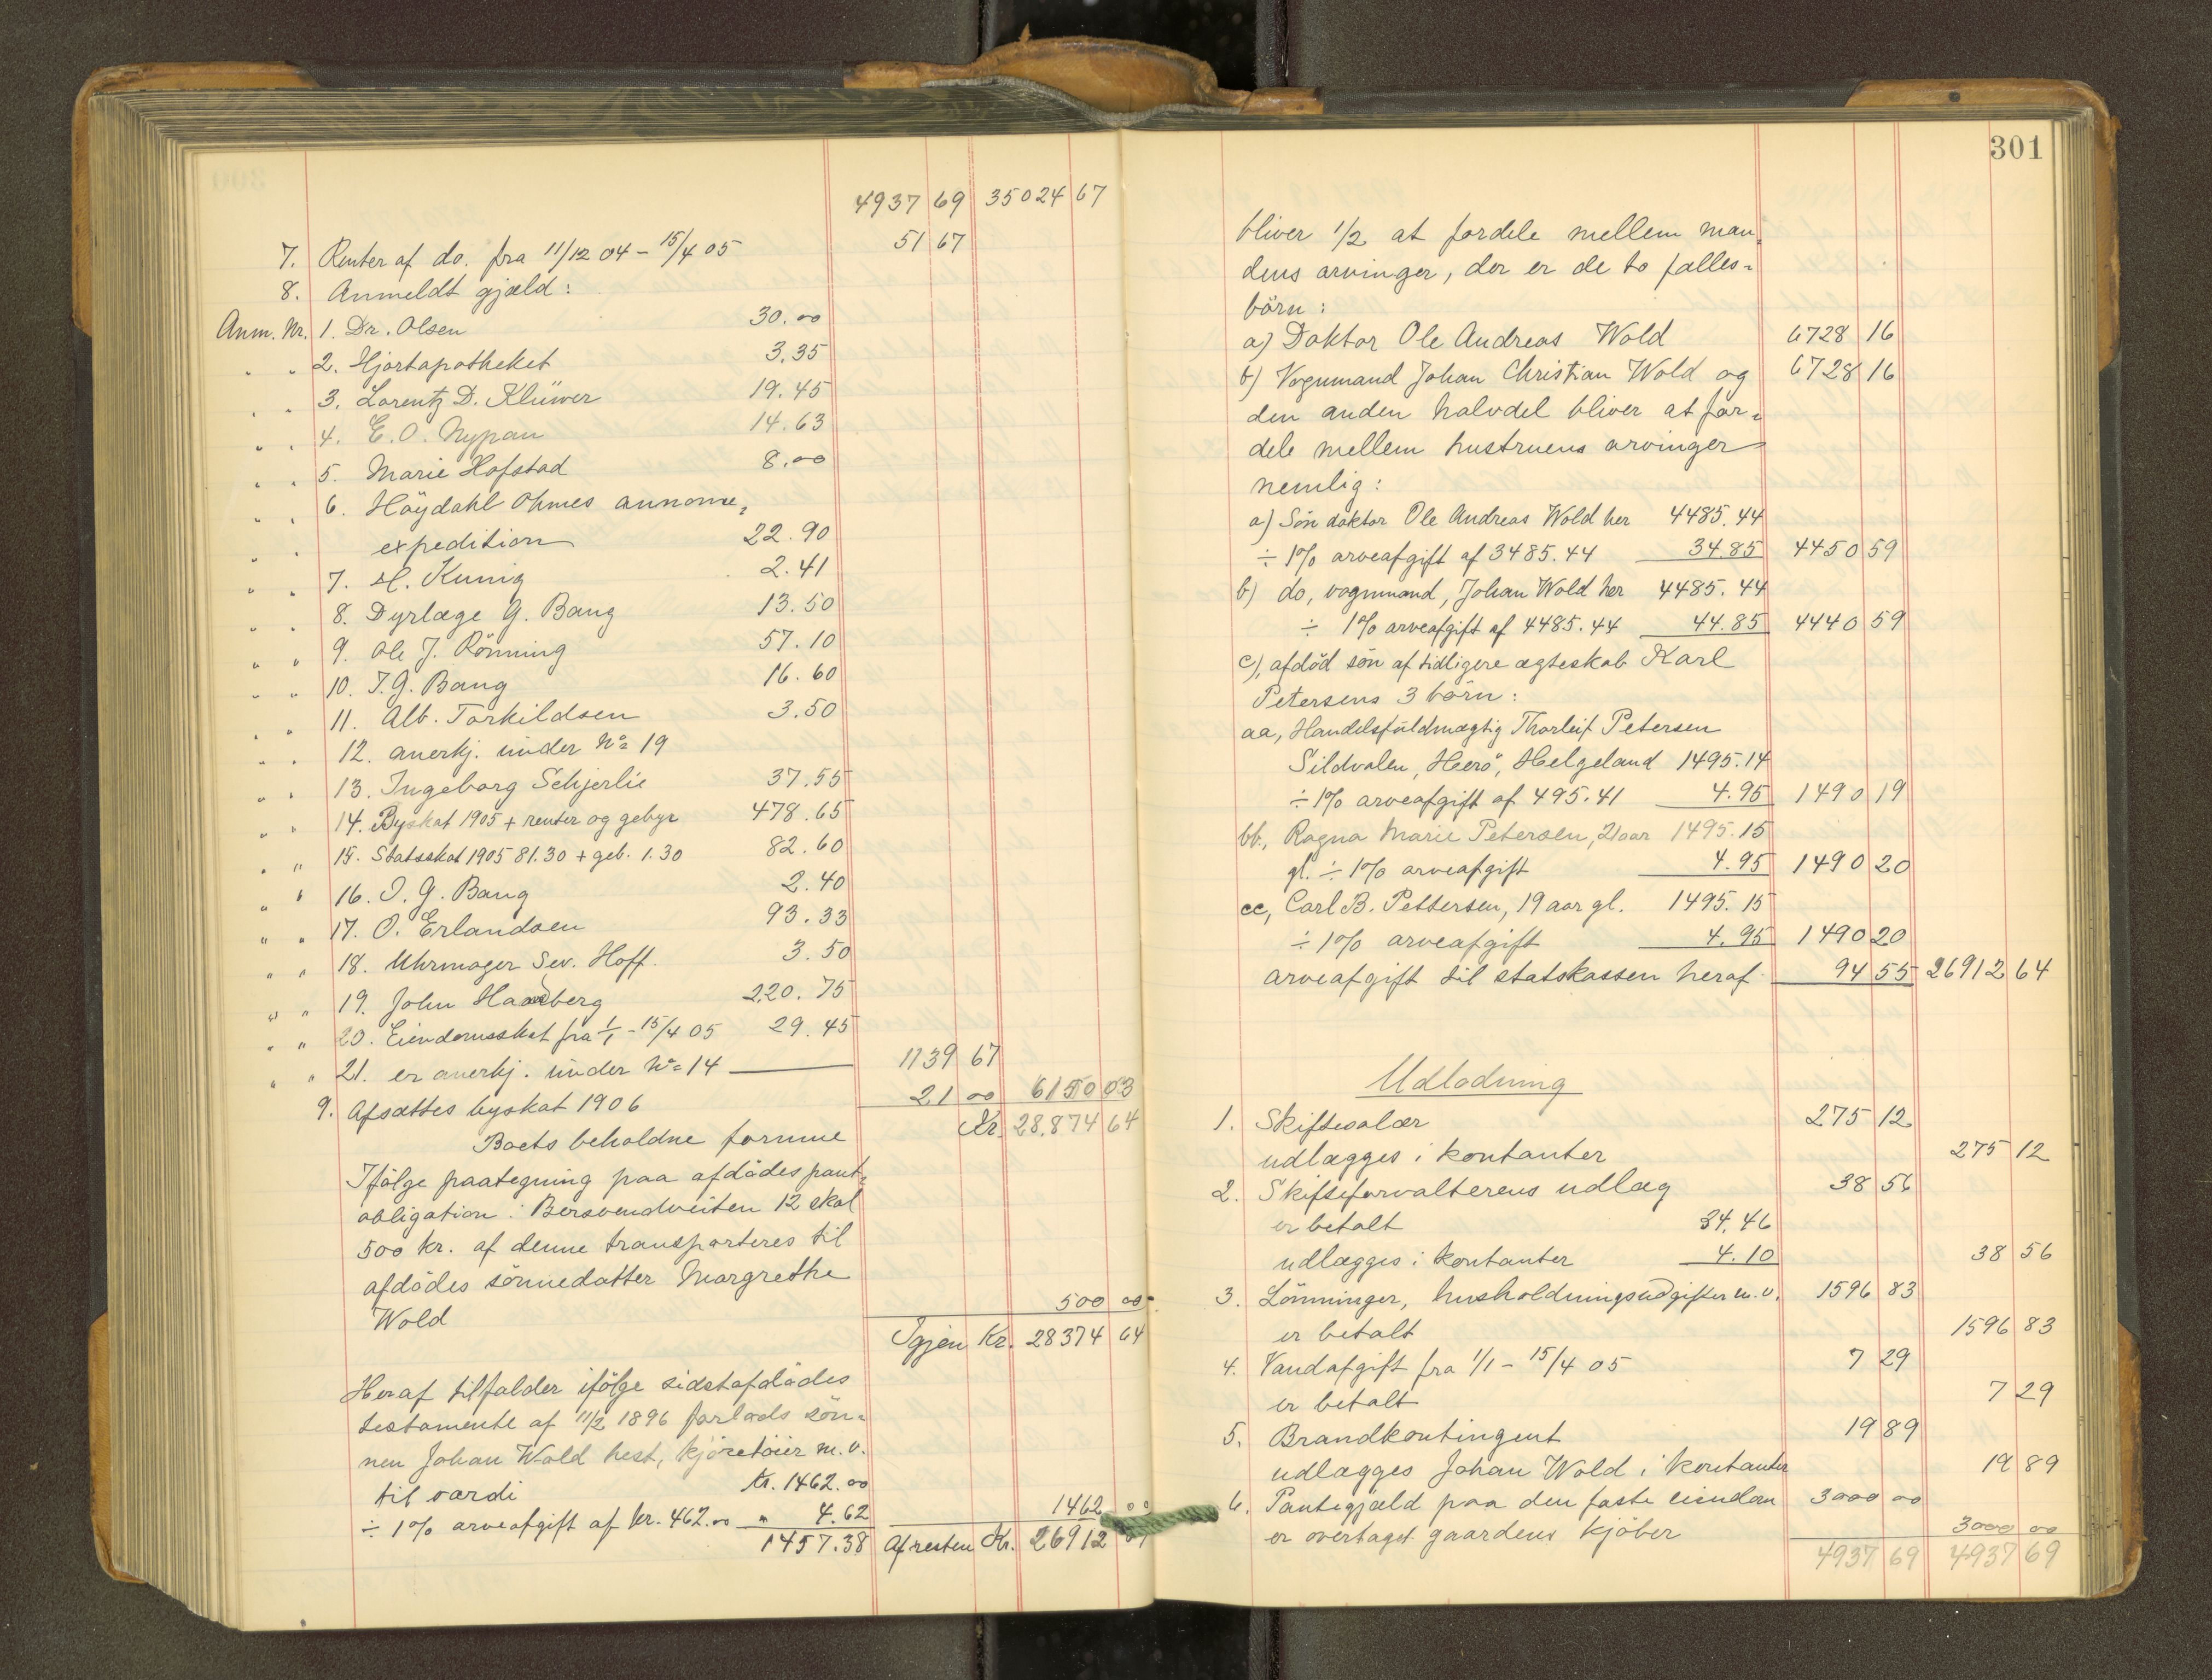 4937 69 35024 67
7. Renter af do. fra 11/12 04 – 15/4 05 51 67
8. Anmeldt gjæld:
Anm. Nr. 1. Dr. Olsen 30.00
" " 2. Hjortapotheket 3.35
" " 3. Lorentz D. Klüwer 19.45
" " 4. E. O. Nypan 14.63
" " 5. Marie Hofstad 8.00
" " 6. Höydahl Ohmes annonce=
" " expedition 22.90
" " 7. H. Kunig 2.41
" " 8. Dyrlæge G. Bang 13.50
" " 9. Ole J. Rönning 57.10
" " 10. I. G. Bang 16.60
" " 11. Alb. Torkildsen 3.50
" " 12. anerkj. under No 19
" " 13. Ingeborg Schjerlie 37.55
" " 14. Byskat 1905 + renter og gebyr 478.65
" " 15. Statsskat 1905 81.30 + geb. 1.30 82.60
" " 16. I. G. Bang 2.40
" " 17. O. Erlandsen 93.33
" " 18. Uhrmager Sev. Hoff. 3.50
" " 19. John Haarberg 220.75
" " 20. Eiendomsskat fra 1/1 – 15/4 05 29.45
" " 21. er anerkj. under No 14 — 1139 67
9. Afsættes byskat 1906 21 00 6150 03
Boets beholdne formue Kr. 28.874 64
Ifölge paategning paa afdödes pant=
obligation i Bersvendveiten 12 skal
500 kr. af denne transporteres til
afdödes sönnedatter Margrethe
Wold 500 00
Igjen Kr. 28374 64
Heraf tilfalder ifölge sidstafdödes
testamente af 11/2 1896 forlods sön=
nen Johan Wold hest, kjöretöier m.v.
til værdi kr. 1462.00 1462 00
÷ 1% arveafgift af kr. 462.00 " 4.62
1457.38 Af resten Kr. 26912 64
301
bliver 1/2 at fordele mellem man=
dens arvinger, der er de to fælles=
börn:
a) Doktor Ole Andreas Wold 6728 16
b) Vognmand Johan Christian Wold og 6728 16
den anden halvdel bliver at for=
dele mellem hustruens arvinger
nemlig:
a) Sön doktor Ole Andreas Wold her 4485.44
÷ 1% arveafgift af 3485.44 34.85 4450 59
b) do, vognmand, Johan Wold her 4485.44
÷ 1% arveafgift af 4485.44 44.85 4440 59
c), afdöd sön af tidligere ægteskab Karl
Petersens 3 börn:
aa, Handelsfuldmægtig Thorleif Petersen
Sildvalen, Herö, Helgeland 1495.14
÷ 1% arveafgift af 495.41 4.95 1490 19
bb., Ragna Marie Petersen, 21 aar 1495.15
gl. ÷ 1% arveafgift 4.95 1490 20
cc, Carl B. Pettersen, 19 aar gl. 1495.15
÷ 1% arveafgift 4.95 1490 20
arveafgift til statskassen heraf 94 55 26912 64
Udlodning
1. Skiftesalær 275 12
udlægges i kontanter 275 12
2. Skifteforvalterens udlæg 38 56
er betalt 34.46
udlægges i kontanter 4.10 38 56
3. Lönninger, husholdningsudgifter m.v. 1596 83
er betalt 1596 83
4. Vandafgift fra 1/1 – 15/4 05 7 29
er betalt 7 29
5. Brandkontingent 19 89
udlægges Johan Wold i kontanter 19 89
6. Pantegjæld paa den faste eiendom 3000 00
er overtaget gaardens kjöber 3000 00
4937 69 4937 69